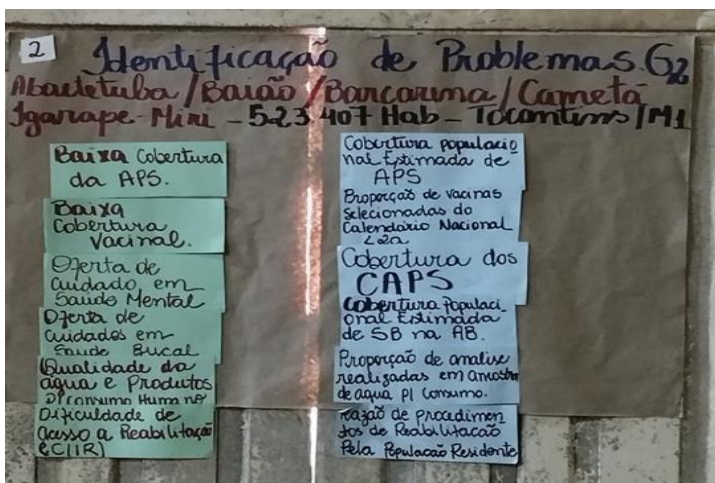 2
Identificação de Problemas. G2
Abaetetuba / Baião / Barcarena / Cametá
Igarape-Miri - 523.407 Hab - Tocantins / M1
Baixa Cobertura
da APS.
Baixa
Cobertura
Vacinal.
Oferta de
cuidado em
Saude Mental
Oferta de
cuidados em
Saude Bucal
Qualidade da
água e Produtos
p/ consumo Humano
Dificuldade de
acesso a Reabilitação
Cobertura populacio
nal Estimada de
APS
Proporção de vacinas
Selecionadas do
Calendário Nacional
<2a
Cobertura dos
CAPS
Cobertura Populaci
onal Estimada
de SB na AB.
Proporção de analise
realizadas em amostra
de agua p/ consumo.
Razão de procedimen
tos de Reabilitacão
Pela População Residente